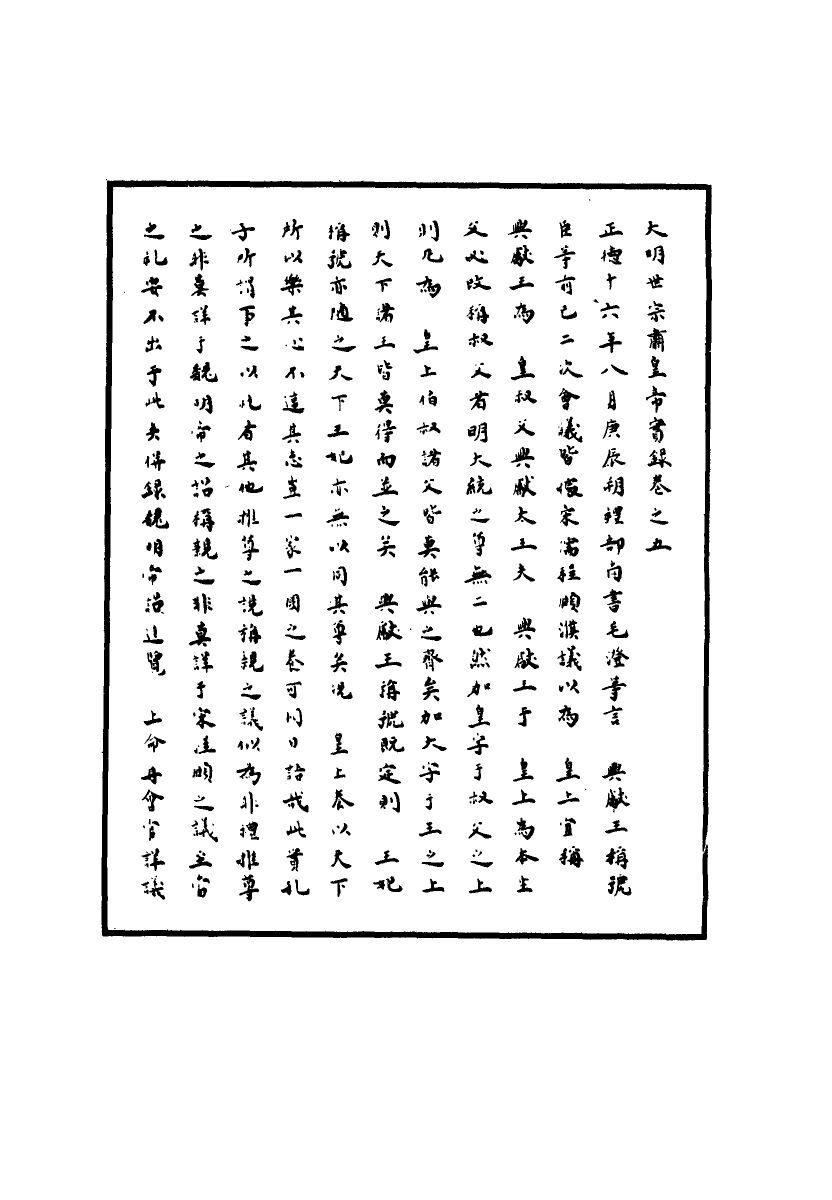 大明世宗肅皇帝實錄卷之五
正德十六年八月庚辰朔禮部尚書毛澄等言　興獻王稱號
臣等前已二次會議皆據宋儒程頤濮議以為　皇上宜稱
興獻王為　皇叔父興獻太王夫　興獻王于　皇上為本生
父必改稱叔父者明大統之尊無二也然加皇字于叔父之上
則凡為　皇上伯叔諸父皆莫能與之齊矣加大字于王之上
則天下諸王皆莫得而並之矣　興獻王稱號既定則　王妃
稱號亦隨之天下王妃亦無以同其尊矣況　皇上養以天下
所以樂其心不違其志豈一家一國之養可同日語哉此實孔
子所謂事之以礼者其他推尊之說稱親之議似為非禮推尊
之非莫詳于魏明帝之詔稱親之非莫詳于宋程頤之議至當
之礼要不出于此夫併錄魏明帝詔進覽　上命再會官詳議